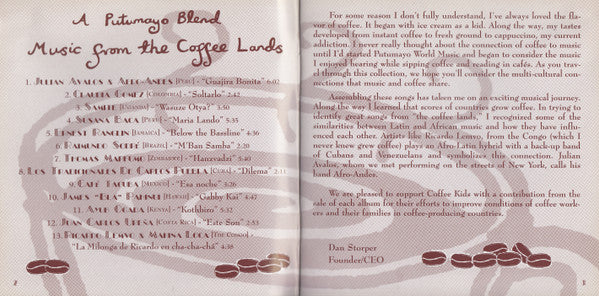 A Putumayo Blend
Music from the Coffee Lands
1. Julian Avalos & Afro-Andes [Peru] - "Guajira Bonita" 6:02
2. Claudia Gomez [Colombia] - "Soltarlo" 2:42
3. Samite [Uganda] - "Wasuze Otya?" 3:50
4. Susana Baca [Peru] - "Maria Lando" 3:35
5. Ernest Ranglin [Jamaica] - "Below the Bassline" 4:36
6. Raimundo Sodré [Brazil] - "M'Ban Samba" 2:20
7. Thomas Mapfumo [Zimbabwe] - "Hanzvadzi"
8. Los Tradicionales De Carlos Puebla [Cuba] - "Dilema"
9. Café Tacuba [Mexico] - "Esa noche" 3:26
10. James "Bla" Pahinui [Hawaii] - "Gabby Kai"
11. Ayub Ogada [Kenya] - "Kothbiro"
12. Juan Carlos Ureña [Costa Rica] - "Este Son" 2:53
13. Ricardo Lemvo & Makina Loca [The Congo] -
"La Milonga de Ricardo en cha-cha-chá" 4:38
2
For some reason I don't fully understand, I've always loved the fla-
vor of coffee. It began with ice cream as a kid. Along the way, my tastes
developed from instant coffee to fresh ground to cappuccino, my current
addiction. I never really thought about the connection of coffee to music
until I'd started Putumayo World Music and began to consider the music
I enjoyed hearing while sipping coffee and reading in cafés. As you trav-
el through this collection, we hope you'll consider the multi-cultural con-
nections that music and coffee share.
Assembling these songs has taken me on an exciting musical journey.
Along the way I learned that scores of countries grow coffee. In trying to
identify great songs from "the coffee lands," I recognized some of the
similarities between Latin and African music and how they have influ-
enced each other. Artists like Ricardo Lemvo, from the Congo (which I
never knew grew coffee) plays an Afro-Latin hybrid with a back-up band
of Cubans and Venezuelans and symbolizes this connection. Julian
Avalos, whom we met performing on the streets of New York, calls his
band Afro-Andes.
We are pleased to support Coffee Kids with a contribution from the
sale of each album for their efforts to improve conditions of coffee work-
ers and their families in coffee-producing countries.
Dan Storper
Founder/CEO